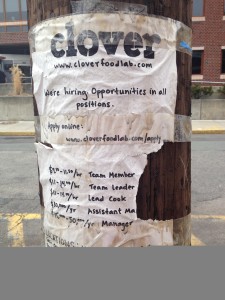 clover
www.cloverfoodlab.com
We're hiring Opportunities in all
positions.
Apply online:
www.cloverfoodlab.com/apply
/hr Team Member
/hr Team Leader
/hr Lead Cook
/yr Assistant Ma
/yr Manager